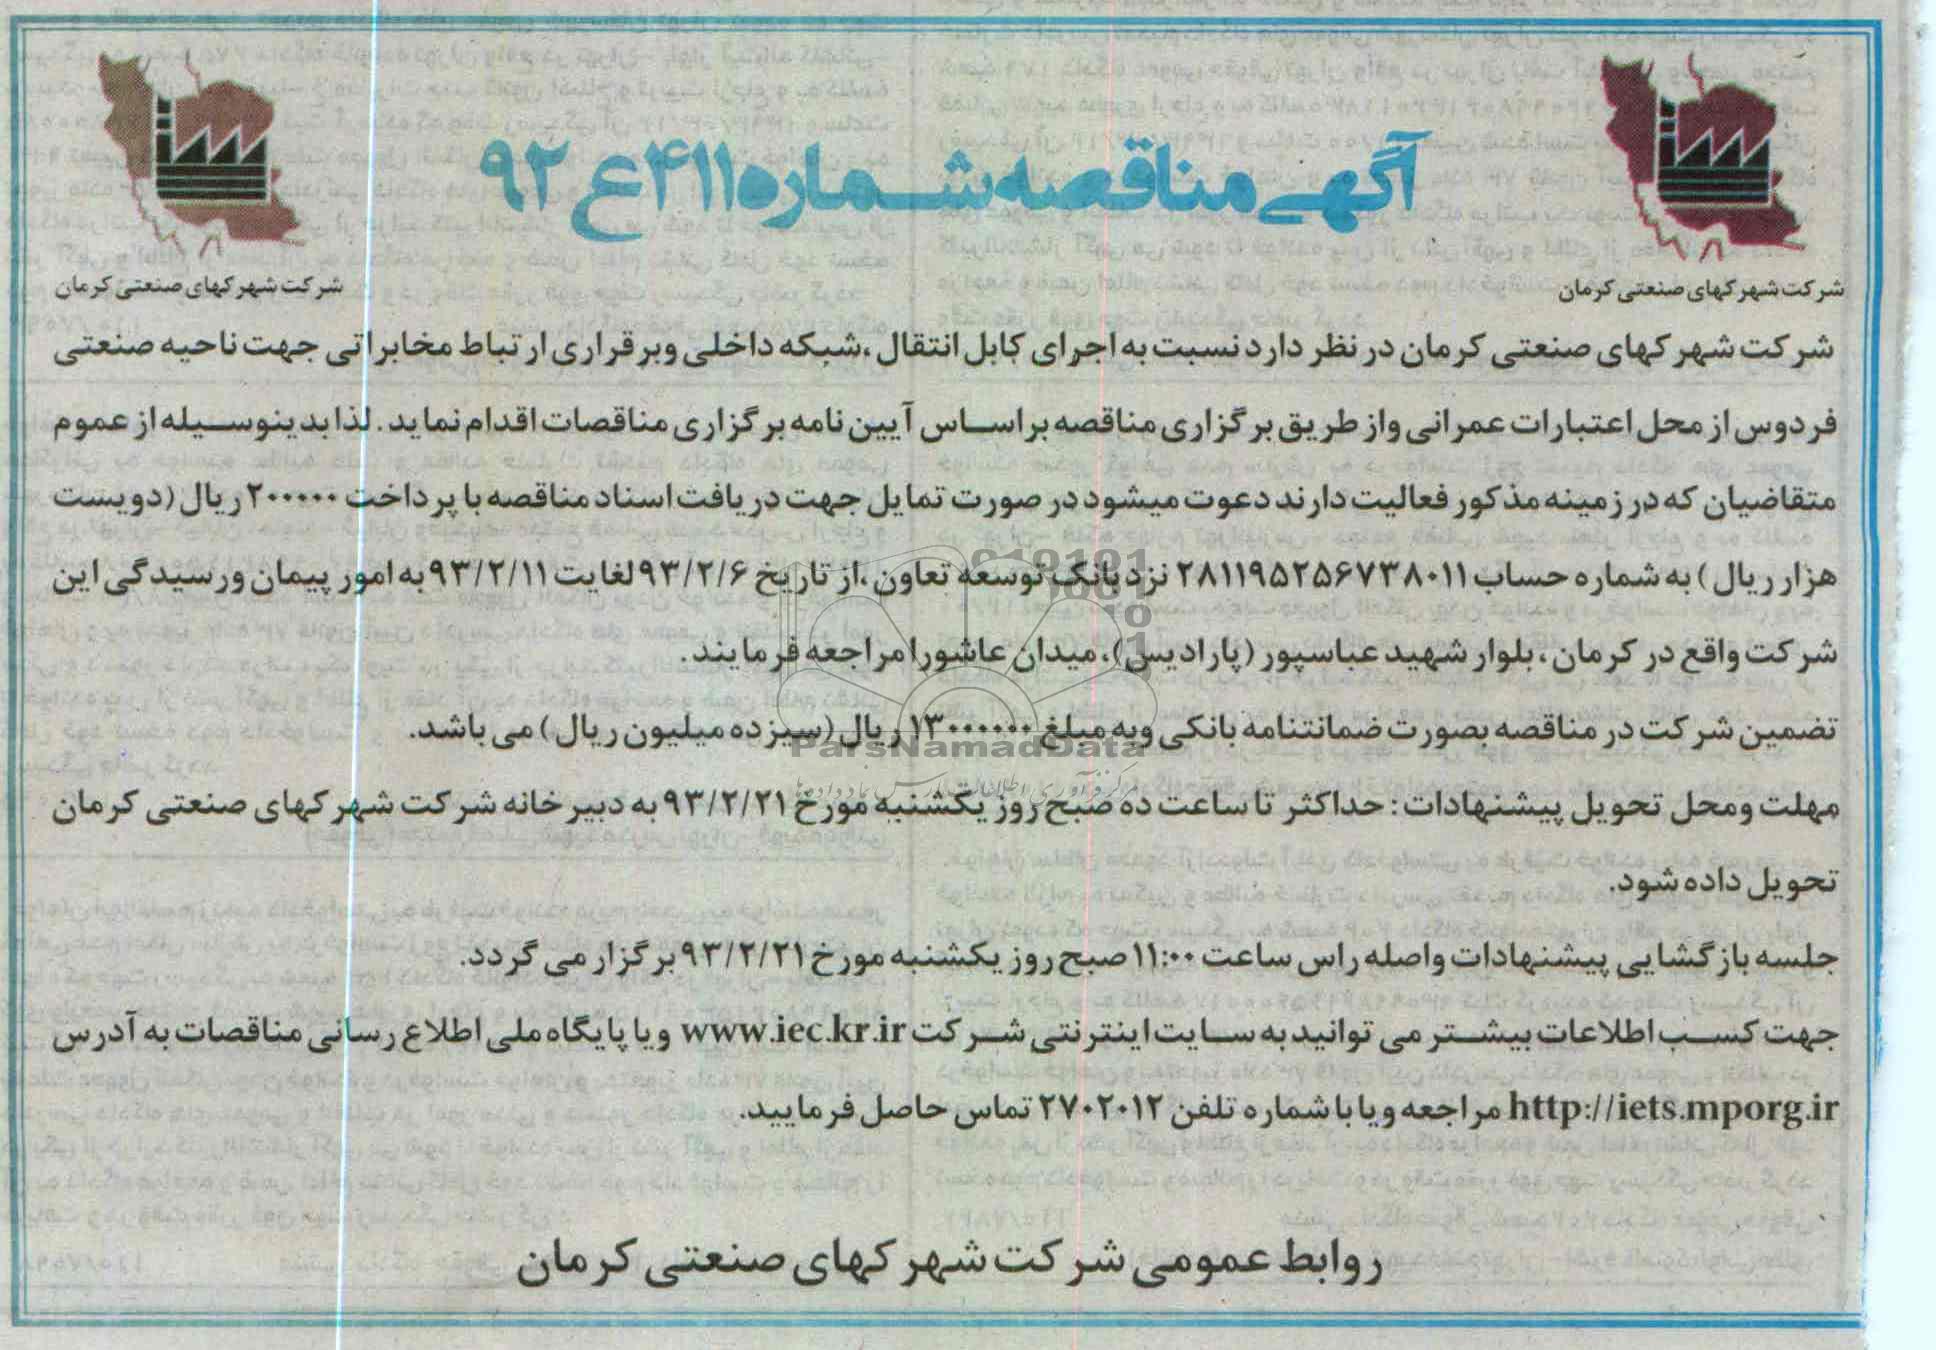 آگهی مناقصه شماره ۴۱۱ع ۹۲
شرکت شهرکهای صنعتی کرمان
شرکت شهرکهای صنعتی کرمان
شرکت شهرکهای صنعتی کرمان در نظر دارد نسبت به اجرای کابل انتقال ،شبکه داخلی وبرقراری ارتباط مخابراتی جهت ناحیه صنعتی
فردوس از محل اعتبارات عمرانی واز طریق برگزاری مناقصه براساس آیین نامه برگزاری مناقصات اقدام نماید. لذا بدینوسیله از عموم
متقاضیان که در زمینه مذکور فعالیت دارند دعوت میشود در صورت تمایل جهت دریافت اسناد مناقصه با پرداخت ۲۰۰۰۰۰ ریال (دویست
هزار ریال) به شماره حساب ۲۸۱۱۹۵۲۵۶۷۳۸۰۱۱ نزد بانک توسعه تعاون ،از تاریخ ۹۳/۲/۶ لغایت ۹۳/۲/۱۱ به امور پیمان ورسیدگی این
شرکت واقع در کرمان، بلوار شهید عباسپور (پارادیس)، میدان عاشورا مراجعه فرمایند.
تضمین شرکت در مناقصه بصورت ضمانتنامه بانکی وبه مبلغ ۱۳۰۰۰۰۰۰ ریال (سیزده میلیون ریال) می باشد.
ParsNamadData
مرکز فرآوری اطلاعات پارس نماد داده ها
مهلت ومحل تحویل پیشنهادات: حداکثر تا ساعت ده صبح روز یکشنبه مورخ ۹۳/۲/۲۱ به دبیرخانه شرکت شهرکهای صنعتی کرمان
تحویل داده شود.
جلسه بازگشایی پیشنهادات واصله راس ساعت ۱۱:۰۰ صبح روز یکشنبه مورخ ۹۳/۲/۲۱ برگزار می گردد.
جهت کسب اطلاعات بیشتر می توانید به سایت اینترنتی شرکت www.iec.kr.ir ویا پایگاه ملی اطلاع رسانی مناقصات به آدرس
http://iets.mporg.ir مراجعه ویا با شماره تلفن ۲۷۰۲۰۱۲ تماس حاصل فرمایید.
روابط عمومی شرکت شهرکهای صنعتی کرمان